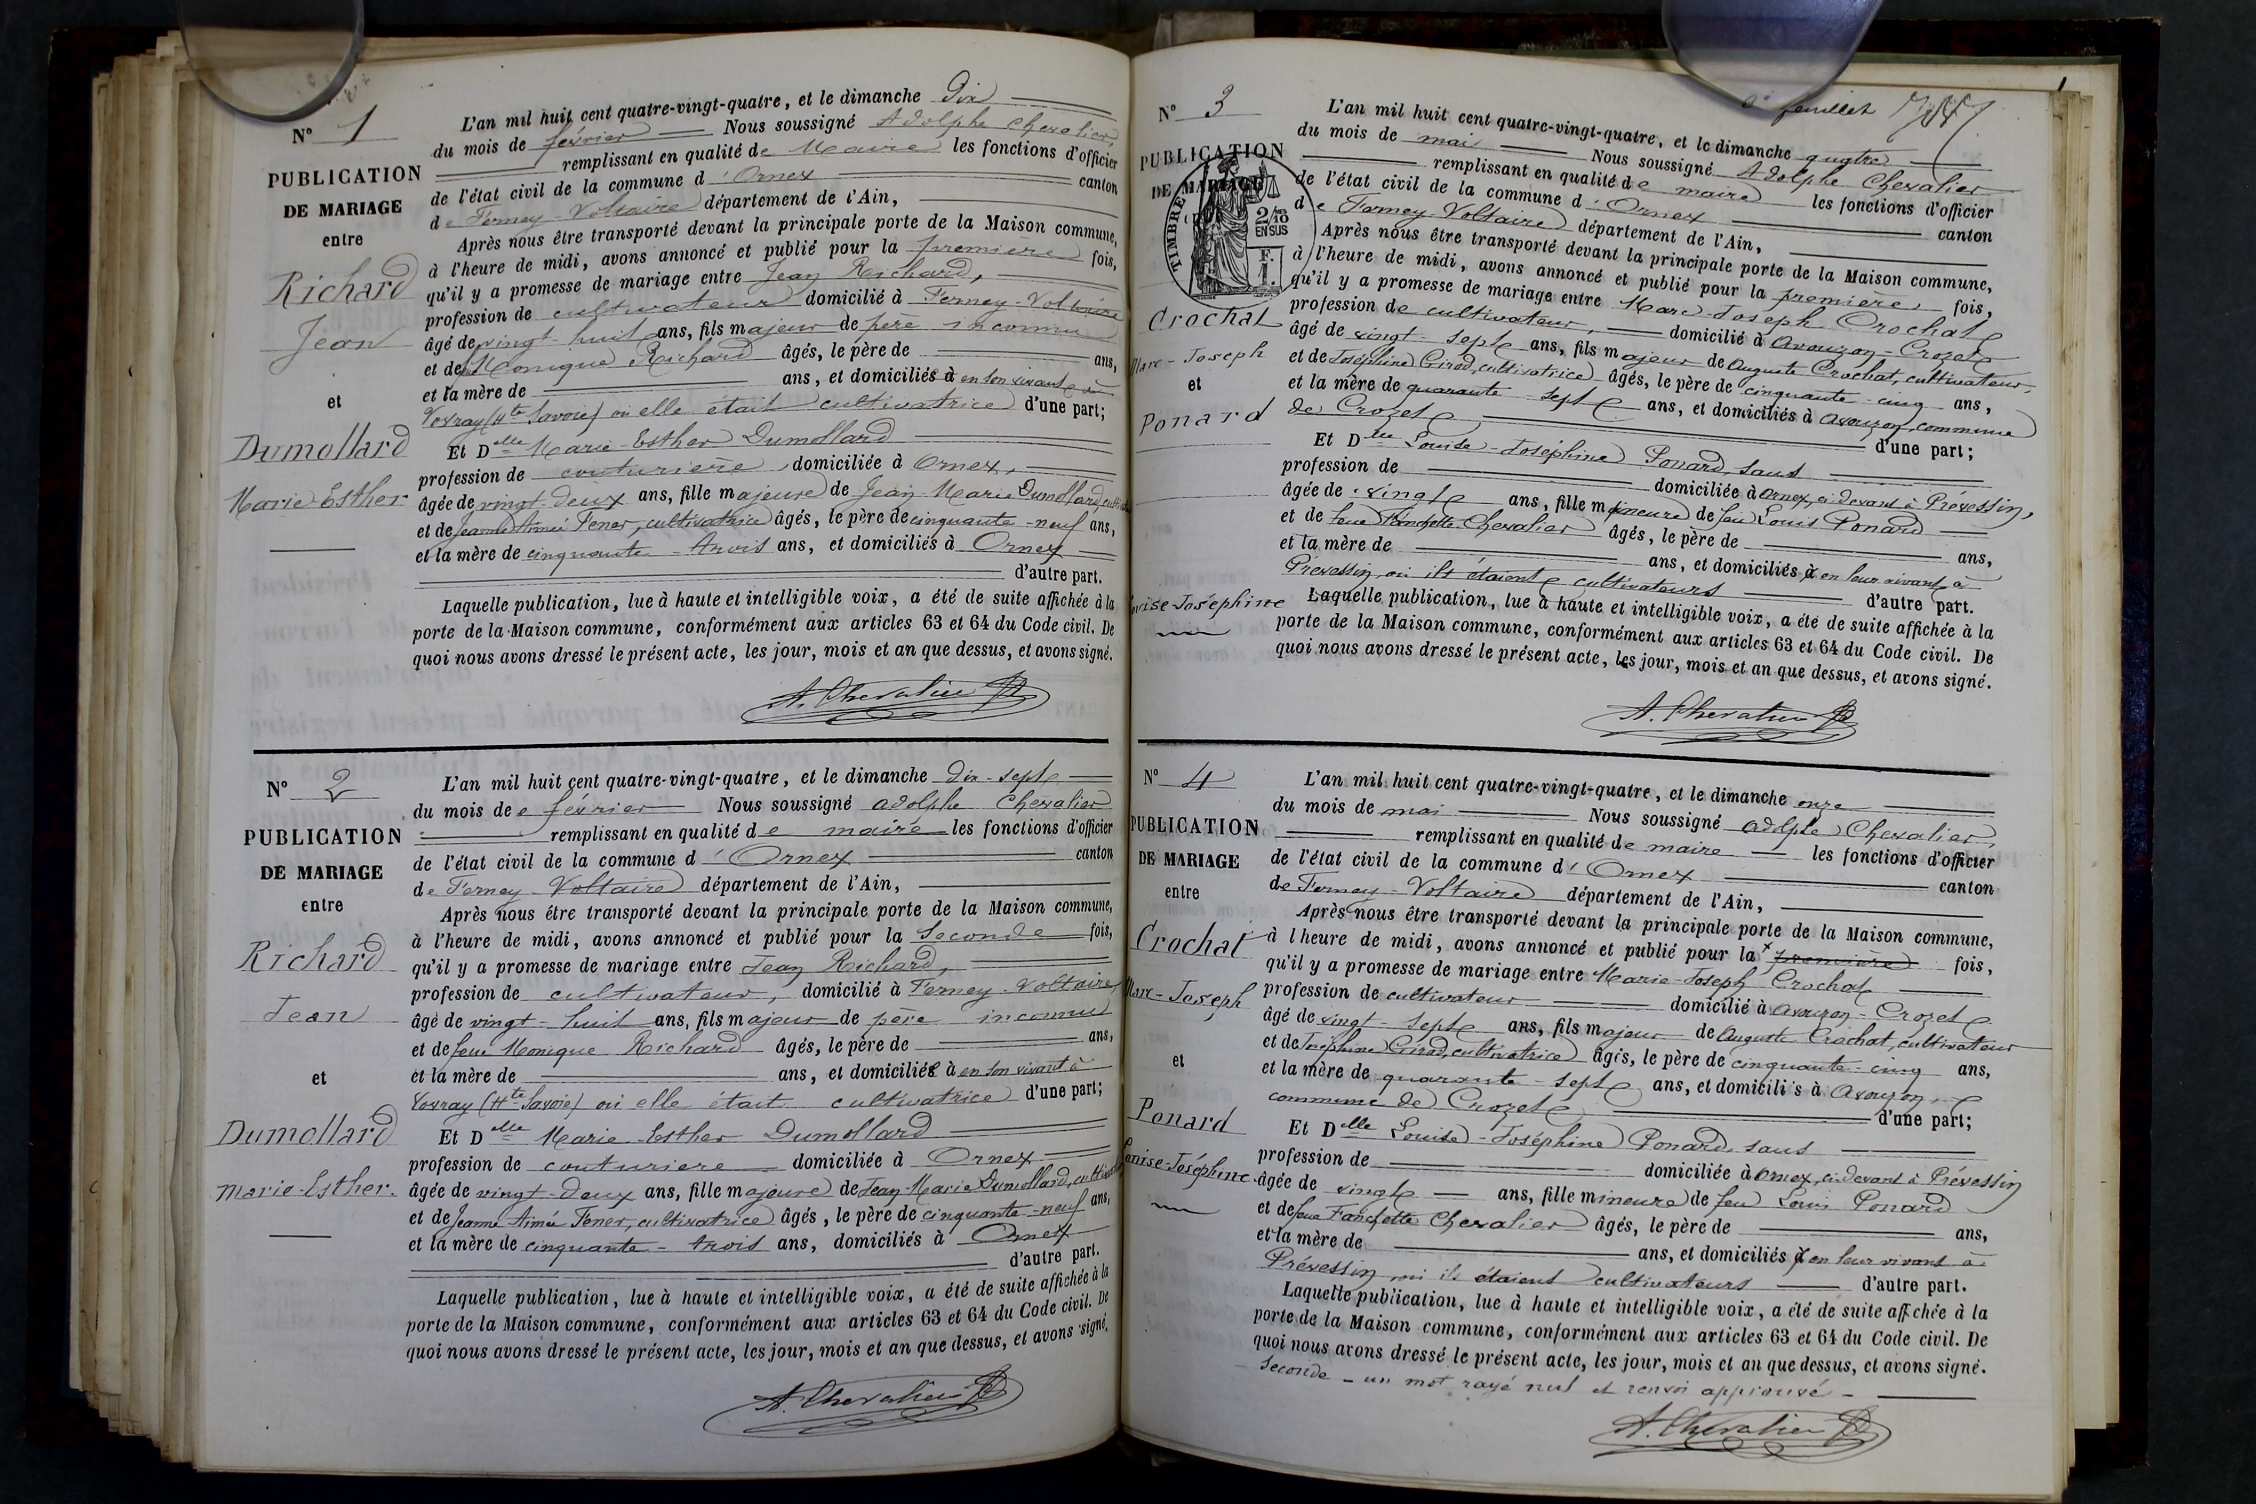 N° 1
PUBLICATION
DE MARIAGE
entre
Richard
Jean
et
Dumollard
Marie-Esther
L'an mil huit cent quatre-vingt-quatre, et le dimanche Dix
du mois de février Nous soussigné Adolphe Chevalier,
remplissant en qualité de Maire les fonctions d'officier
de l'état civil de la commune d'Ornex canton
de Ferney-Voltaire département de l'Ain,
Après nous être transporté devant la principale porte de la Maison commune,
à l'heure de midi, avons annoncé et publié pour la première fois,
qu'il y a promesse de mariage entre Jean Richard,
profession de cultivateur domicilié à Ferney-Voltaire
âgé de vingt-huit ans, fils majeur de père inconnu
et de Monique Richard âgés, le père de ans,
et la mère de ans, et domiciliés à en son vivant à
Vovray (Hte Savoie) où elle était cultivatrice d'une part;
Et Delle Marie-Esther Dumollard
profession de couturière, domiciliée à Ornex,
âgée de vingt-deux ans, fille majeure de Jean-Marie Dumollard,
et de Jeanne Aimée Fener, cultivatrice âgés, le père de cinquante-neuf ans,
et la mère de cinquante-trois ans, et domiciliés à Ornex
d'autre part.
Laquelle publication, lue à haute et intelligible voix, a été de suite affichée à la
porte de la Maison commune, conformément aux articles 63 et 64 du Code civil. De
quoi nous avons dressé le présent acte, les jour, mois et an que dessus, et avons signé.
A. Chevalier
N° 2
PUBLICATION
DE MARIAGE
entre
Richard
Jean
et
Dumollard
Marie-Esther.
L'an mil huit cent quatre-vingt-quatre, et le dimanche dix-sept
du mois de février Nous soussigné adolphe Chevalier
remplissant en qualité de maire les fonctions d'officier
de l'état civil de la commune d'Ornex canton
de Ferney-Voltaire département de l'Ain,
Après nous être transporté devant la principale porte de la Maison commune,
à l'heure de midi, avons annoncé et publié pour la Seconde fois,
qu'il y a promesse de mariage entre Jean Richard,
profession de cultivateur, domicilié à Ferney-Voltaire,
âgé de vingt-huit ans, fils majeur de père inconnu
et de feue Monique Richard âgés, le père de ans,
et la mère de ans, et domiciliée à en son vivant à
Vovray (Hte Savoie) où elle était cultivatrice d'une part;
Et Delle Marie Esther Dumollard
profession de couturière domiciliée à Ornex
âgée de vingt-deux ans, fille majeure de Jean-Marie Dumollard,
et de Jeanne Aimée Fener, cultivatrice âgés, le père de cinquante-neuf ans,
et la mère de cinquante-trois ans, domiciliés à Ornex
d'autre part.
Laquelle publication, lue à haute et intelligible voix, a été de suite affichée à la
porte de la Maison commune, conformément aux articles 63 et 64 du Code civil. De
quoi nous avons dressé le présent acte, les jour, mois et an que dessus, et avons signé.
A. Chevalier
feuillet
N° 3
PUBLICATION
DE MARIAGE
TIMBRE
2/10
EN SUS
F.
1.
Crochat
Marc-Joseph
et
Ponard
Louise-Joséphine
L'an mil huit cent quatre-vingt-quatre, et le dimanche quatre
du mois de mai Nous soussigné Adolphe Chevalier
remplissant en qualité de maire les fonctions d'officier
de l'état civil de la commune d'Ornex canton
de Ferney-Voltaire département de l'Ain,
Après nous être transporté devant la principale porte de la Maison commune,
à l'heure de midi, avons annoncé et publié pour la première fois,
qu'il y a promesse de mariage entre Marc-Joseph Crochat
profession de cultivateur, domicilié à Avouzon-Crozet
âgé de vingt-sept ans, fils majeur de Auguste Crochat, cultivateur,
et de Joséphine Girod, cultivatrice âgés, le père de cinquante-cinq ans,
et la mère de quarante-sept ans, et domiciliés à Avouzon, commune
de Crozet d'une part;
Et Dlle Louise-Joséphine Ponard, sans
profession de domiciliée à Ornex, ci-devant à Prévessin,
âgée de vingt ans, fille mineure de feu Louis Ponard
et de feue Fanchette Chevalier âgés, le père de ans,
et la mère de ans, et domiciliés à en leur vivant à
Prévessin où ils étaient cultivateurs d'autre part.
Laquelle publication, lue à haute et intelligible voix, a été de suite affichée à la
porte de la Maison commune, conformément aux articles 63 et 64 du Code civil. De
quoi nous avons dressé le présent acte, les jour, mois et an que dessus, et avons signé.
A. Chevalier
N° 4
PUBLICATION
DE MARIAGE
entre
Crochat
Marc-Joseph
et
Ponard
Louise-Joséphine
L'an mil huit cent quatre-vingt-quatre, et le dimanche onze
du mois de mai Nous soussigné adolphe Chevalier,
remplissant en qualité de maire les fonctions d'officier
de l'état civil de la commune d'Ornex canton
de Ferney-Voltaire département de l'Ain,
Après nous être transporté devant la principale porte de la Maison commune,
à l'heure de midi, avons annoncé et publié pour la première fois,
qu'il y a promesse de mariage entre Marie-Joseph Crochat
profession de cultivateur domicilié à Avouzon-Crozet
âgé de vingt-sept ans, fils majeur de Auguste Crochat, cultivateur
et de Joséphine Girod, cultivatrice âgés, le père de cinquante-cinq ans,
et la mère de quarante-sept ans, et domiciliés à Avouzon,
commune de Crozet d'une part;
Et Delle Louise-Joséphine Ponard, sans
profession de domiciliée à Ornex, ci-devant à Prévessin
âgée de vingt ans, fille mineure de feu Louis Ponard
et de feue Fanchette Chevalier âgés, le père de ans,
et la mère de ans, et domiciliés à en leur vivant à
Prévessin, où ils étaient cultivateurs d'autre part.
Laquelle publication, lue à haute et intelligible voix, a été de suite affichée à la
porte de la Maison commune, conformément aux articles 63 et 64 du Code civil. De
quoi nous avons dressé le présent acte, les jour, mois et an que dessus, et avons signé.
Seconde - un mot rayé nul et renvoi approuvé -
A. Chevalier